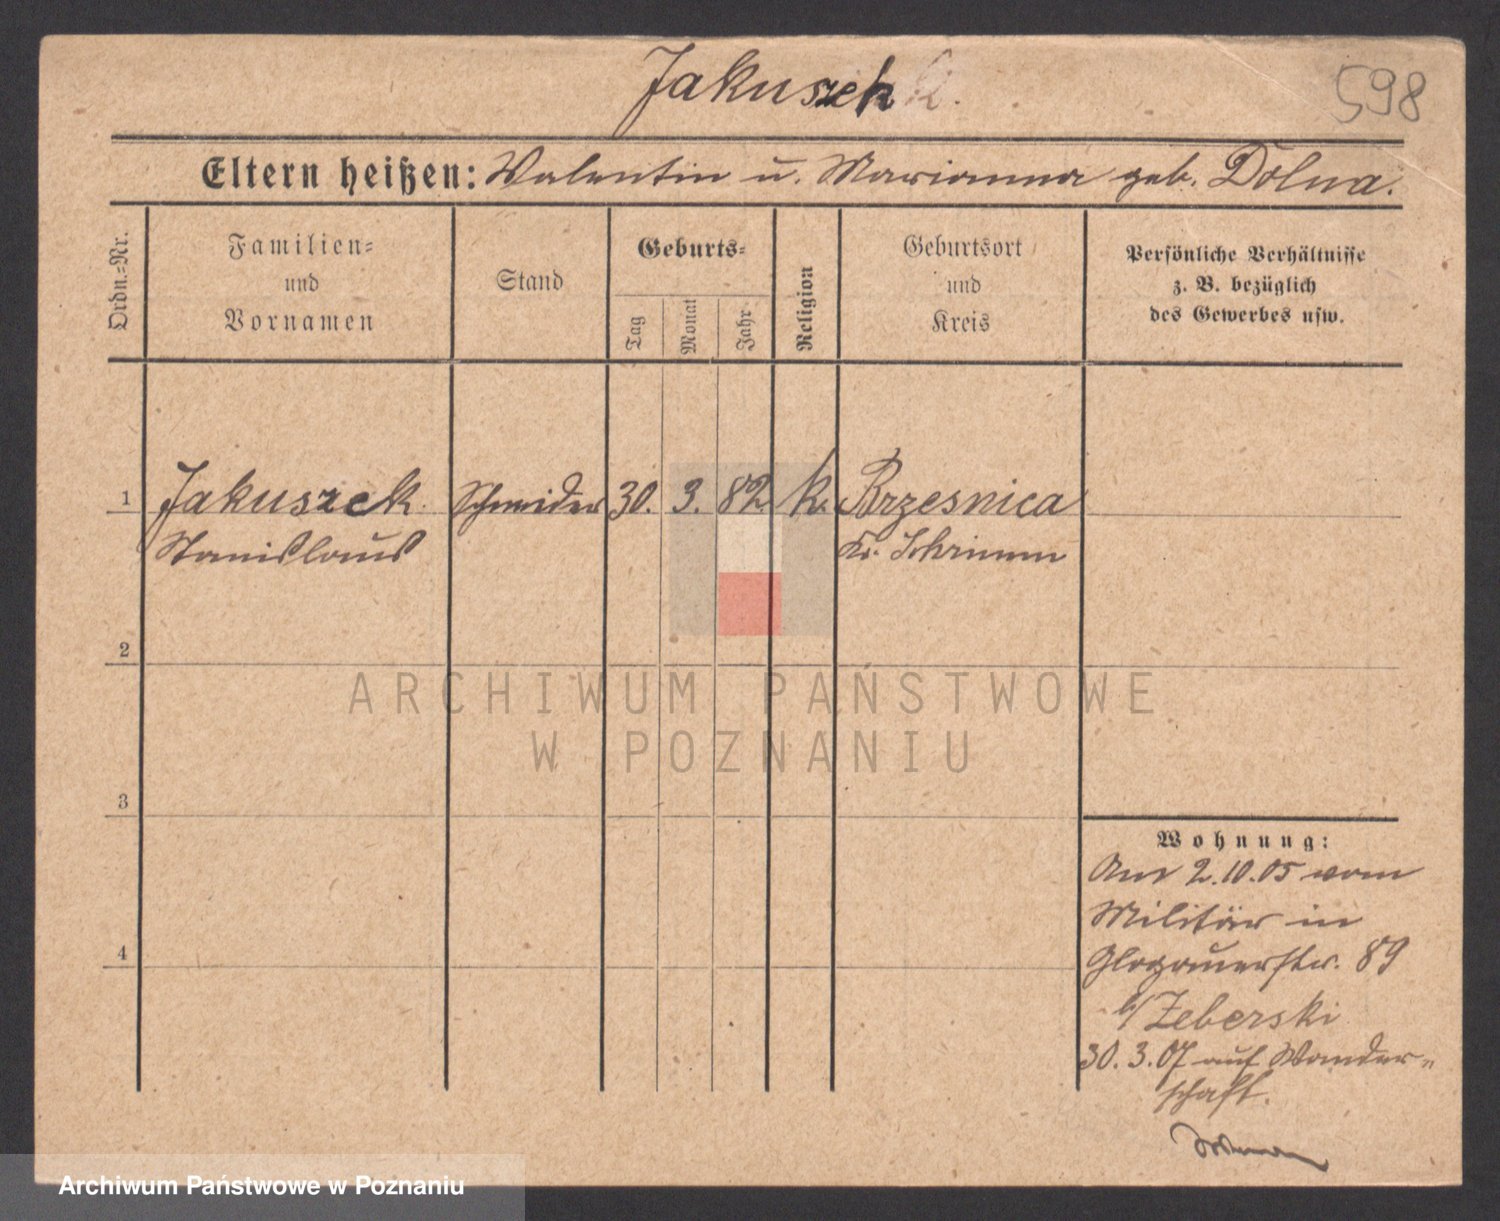 Jakuszek
598
Eltern heißen: Valentin u. Marianna geb. Dolna.
Ordn.=Nr.
Familien=
und
Vornamen
Stand
Geburts=
Tag
Monat
Jahr
Religion
Geburtsort
und
Kreis
Persönliche Verhältnisse
z. B. bezüglich
des Gewerbes usw.
1 Jakuszek Schneider 30. 3. 82 k. Brzesnica
Stanislaus Kr. Schrimm
2
ARCHIWUM PAŃSTWOWE
W POZNANIU
3
Wohnung:
Am 2.10.05 vom
Militär in
4 Glogauerstr. 89
b/ Zeberski
30.3.07 auf Wander=
schaft.
Archiwum Państwowe w Poznaniu